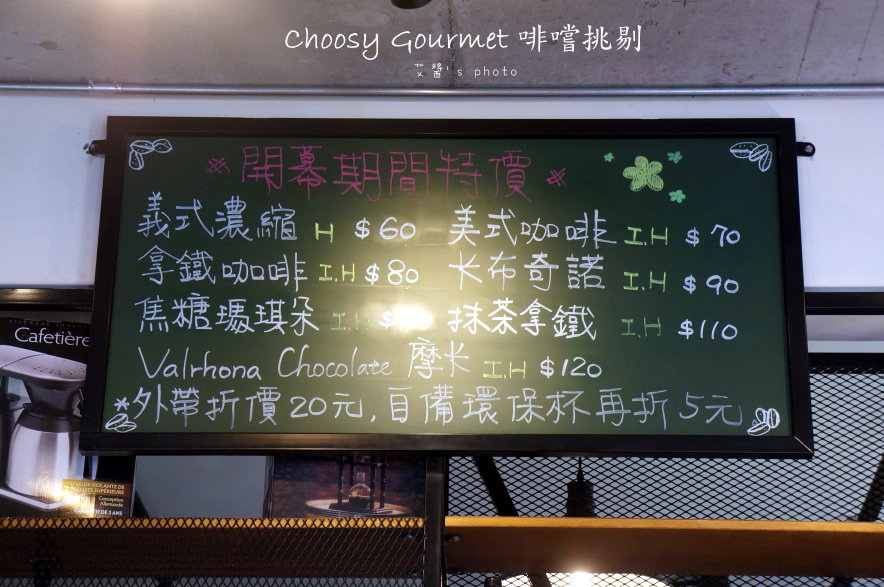 Choosy Gourmet 啡嚐挑剔
艾醬's photo
※開幕期間特價※
義式濃縮 H $60 美式咖啡 I.H $70
拿鐵咖啡 I.H $80 卡布奇諾 I.H $90
焦糖瑪琪朵 I.H 抹茶拿鐵 I.H $110
Valrhona Chocolate 摩卡 I.H $120
*外帶折價20元,自備環保杯再折5元
Cafetière
MEILLEURE ISOLANTE DE
Conception
Allemande
GARANTIE DE 2 ANS